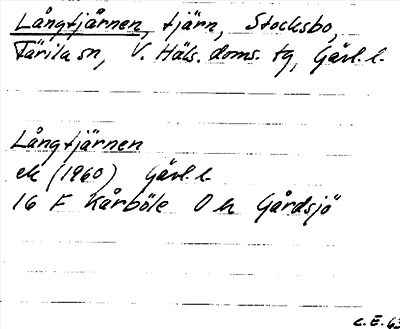 Långtjärnen, tjärn, Stocksbo,
Färila sn, V. Häls. doms. tg, Gävl. l.
Långtjärnen
ek (1960) Gävl. l.
16 F Kårböle 0 h Gårdsjö
C.E. 63